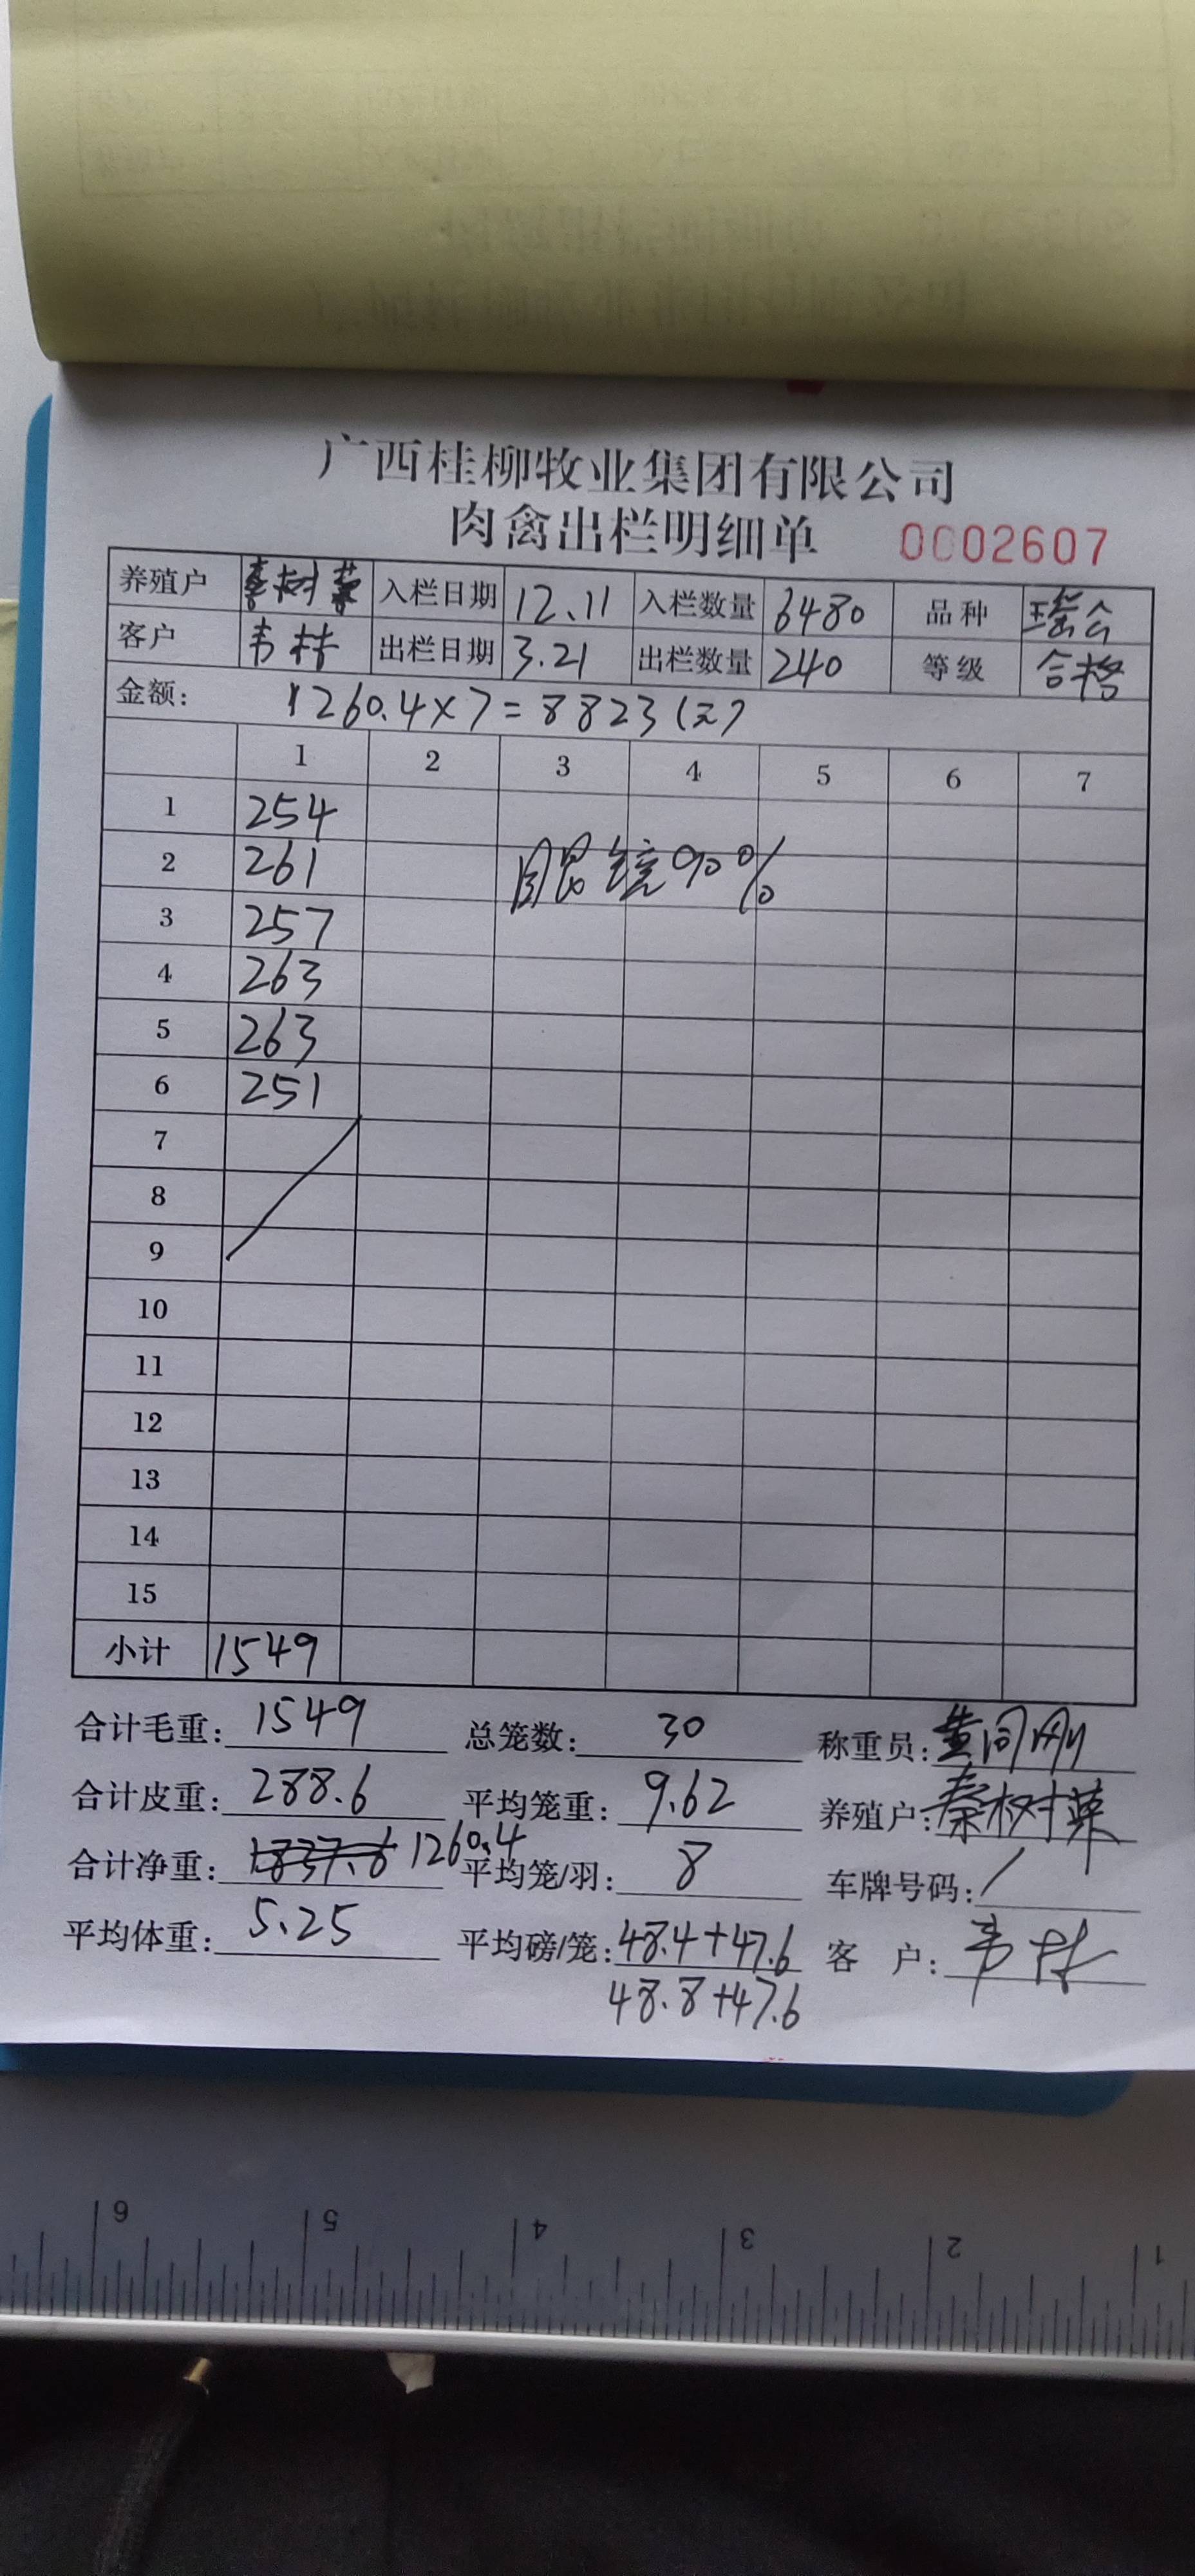 广西桂柳牧业集团有限公司
肉禽出栏明细单 0002607
养殖户 秦树 入栏日期 12.11 入栏数量 6480 品种 瑶
客户 韦林 出栏日期 3.21 出栏数量 240 等级 合格
金额: 1260.4×7=8823(元)
1 2 3 4 5 6 7
1 254
2 261 眼镜90%
3 257
4 263
5 263
6 251
7
8
9
10
11
12
13
14
15
小计 1549
合计毛重: 1549 总笼数: 30 称重员: 黄同刚
合计皮重: 288.6 平均笼重: 9.62 养殖户: 秦树
合计净重: 1837.6 1260.4 平均笼/羽: 8 车牌号码: /
平均体重: 5.25 平均磅/笼: 48.4+47.6 客 户: 韦林
48.8+47.6
6 5 4 3 2 1